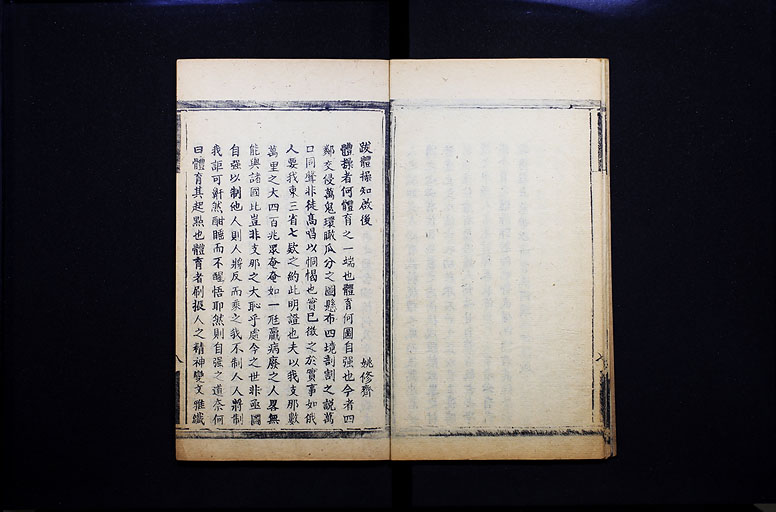 跋體操知啟後
姚修齊
體操者何體育之一端也體育何圖自強也今者四
鄰交侵萬鬼環瞰瓜分之圖懸布四境割割之說萬
口同聲非徒高唱以恫愒也實已徵之於實事如俄
人要我東三省七欵之約此明證也夫以我支那數
萬里之大四百兆眾奄奄如一尩羸病廢之人畧無
能與諸國比豈非支那之大恥乎處今之世非亟圖
自強以制他人則人將反而乘之我不制人人將制
我詎可鼾然酣睡而不醒悟耶然則自強之道奈何
曰體育其起點也體育者刷振人之精神變文雅纖